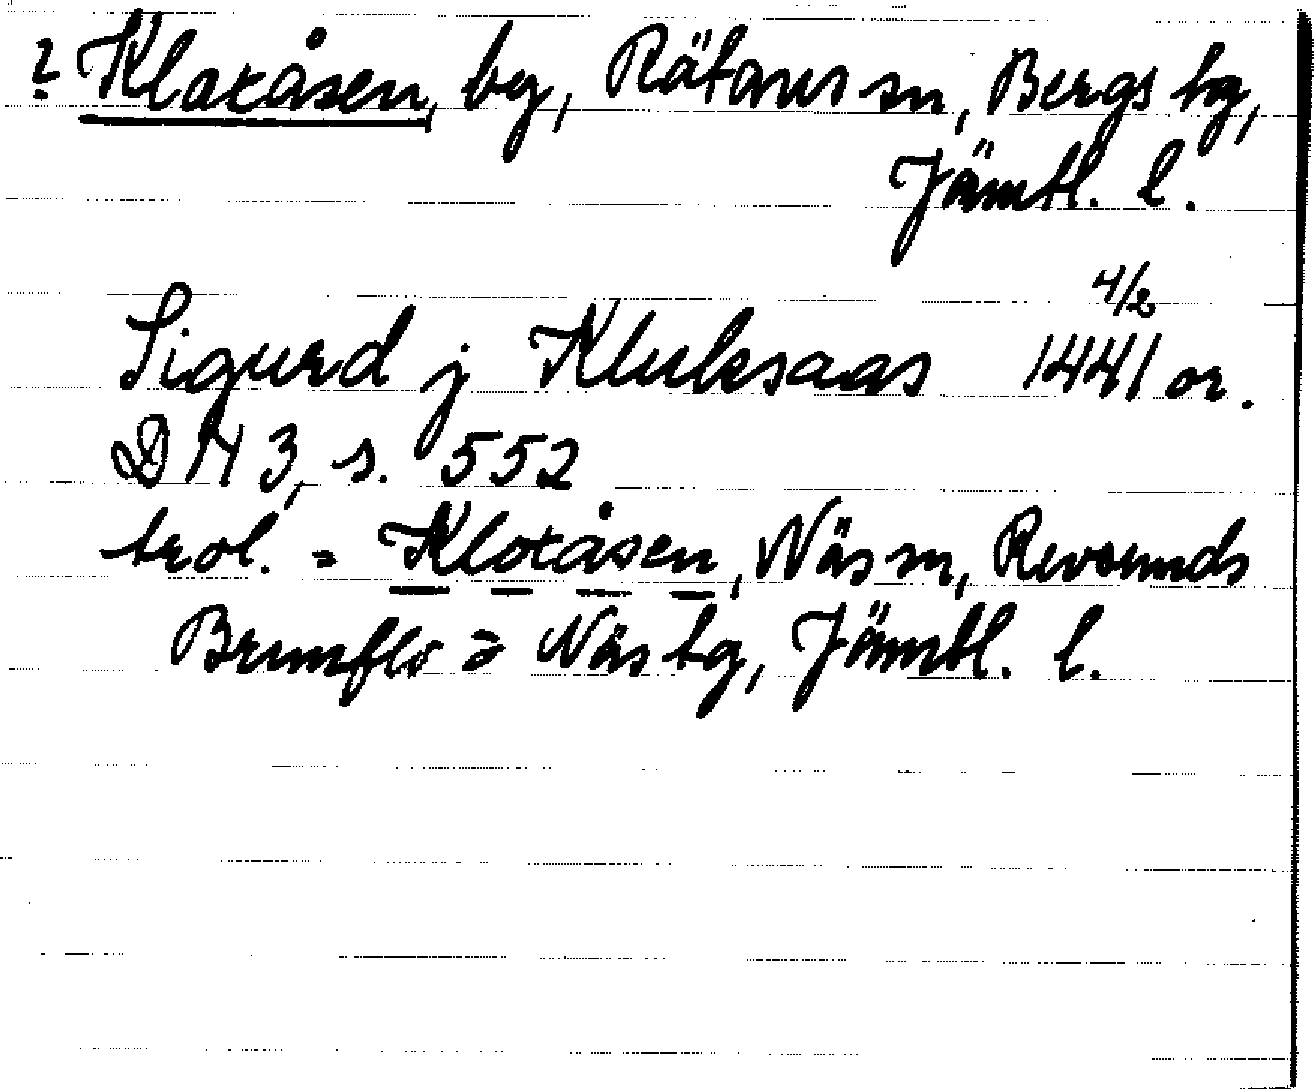 ? Klaxåsen, by, Rätans sn, Bergs tg,
Jämtl. l.
Sigurd j Kluksaas 4/2 1441 or.
DN 3, s. 552
trol. = Kloxåsen, Näs sn, Revsunds
Brunflo o Näs tg, Jämtl. l.